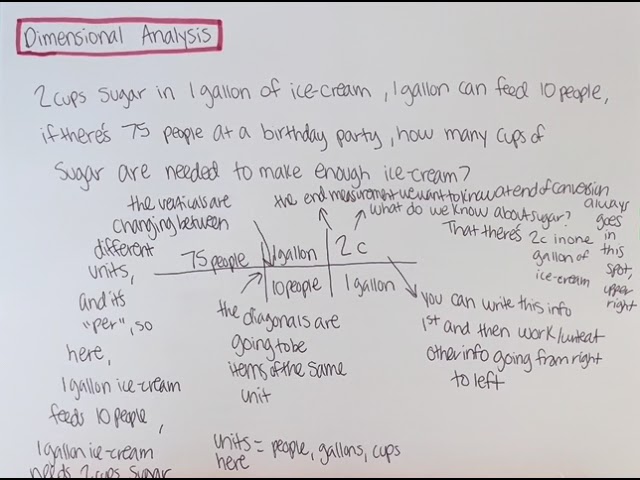 Dimensional Analysis
2 cups sugar in 1 gallon of ice-cream, 1 gallon can feed 10 people,
if there's 75 people at a birthday party, how many cups of
sugar are needed to make enough ice-cream?
the verticals are
changing between
different
units,
and it's
"per", so
here,
1 gallon ice-cream
feeds 10 people,
1 gallon ice-cream
needs 2 cups sugar
the end measurement we want to know at end of conversion
what do we know about sugar?
That there's 2c in one
gallon of
ice-cream
always
goes
in
this
spot,
upper
right
75 people 1 gallon 2c
10 people 1 gallon
the
diagonals are
going to be
items of the same
unit
you can write this info
1st and then work/
other info going from right
to left
units = people, gallons, cups
here